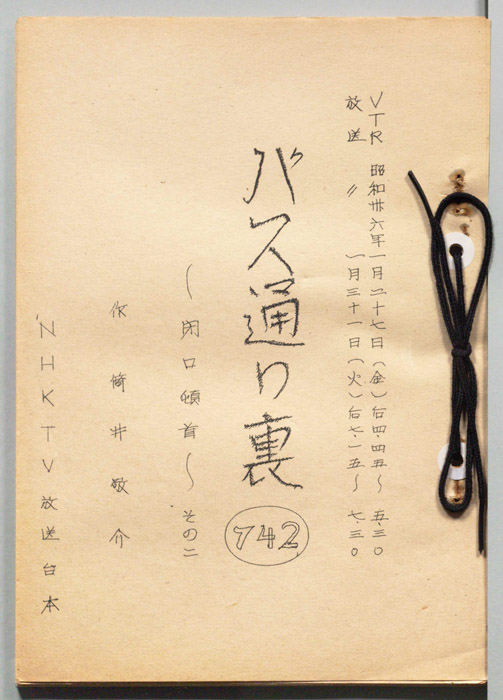 VTR 昭和卅六年一月二十七日(金)后四.四五〜五.三〇
放送 〃 一月三十一日(火)后七.一五〜七.三〇
バス通り裏
742
〜閉口頓首〜 その二
作 筒井敬介
NHKTV放送台本